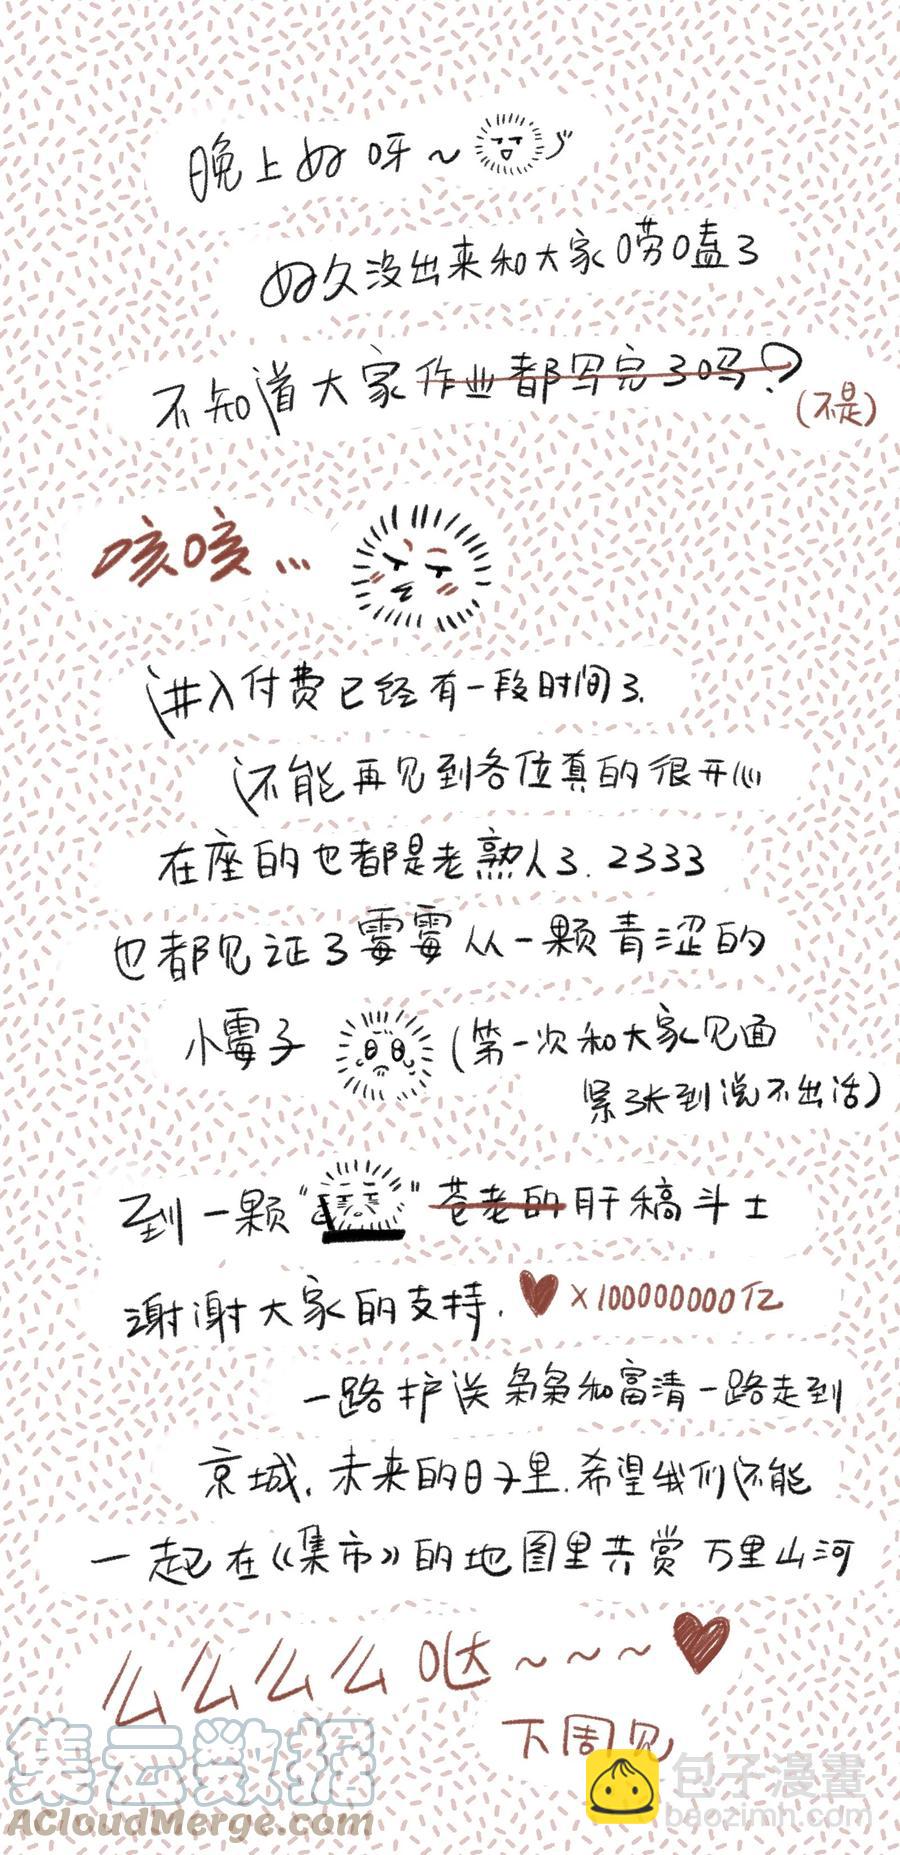 晚上好呀~
好久没出来和大家唠嗑了
不知道大家作业都写完了吗?
(不是)
咳咳...
进入付费已经有一段时间了.
还能再见到各位真的很开心
在座的也都是老熟人了.2333
也都见证了霉霉从一颗青涩的
小霉子 (第一次和大家见面
紧张到说不出话)
到一颗“ ”苍老的肝稿斗士
谢谢大家的支持. ×100000000亿
一路护送枭枭和富清一路走到
京城.未来的日子里.希望我们还能
一起在《集市》的地图里共赏万里山河
么么么么哒~~~
下周见
集云数据
ACloudMerge.com
包子漫畫
baozimh.com